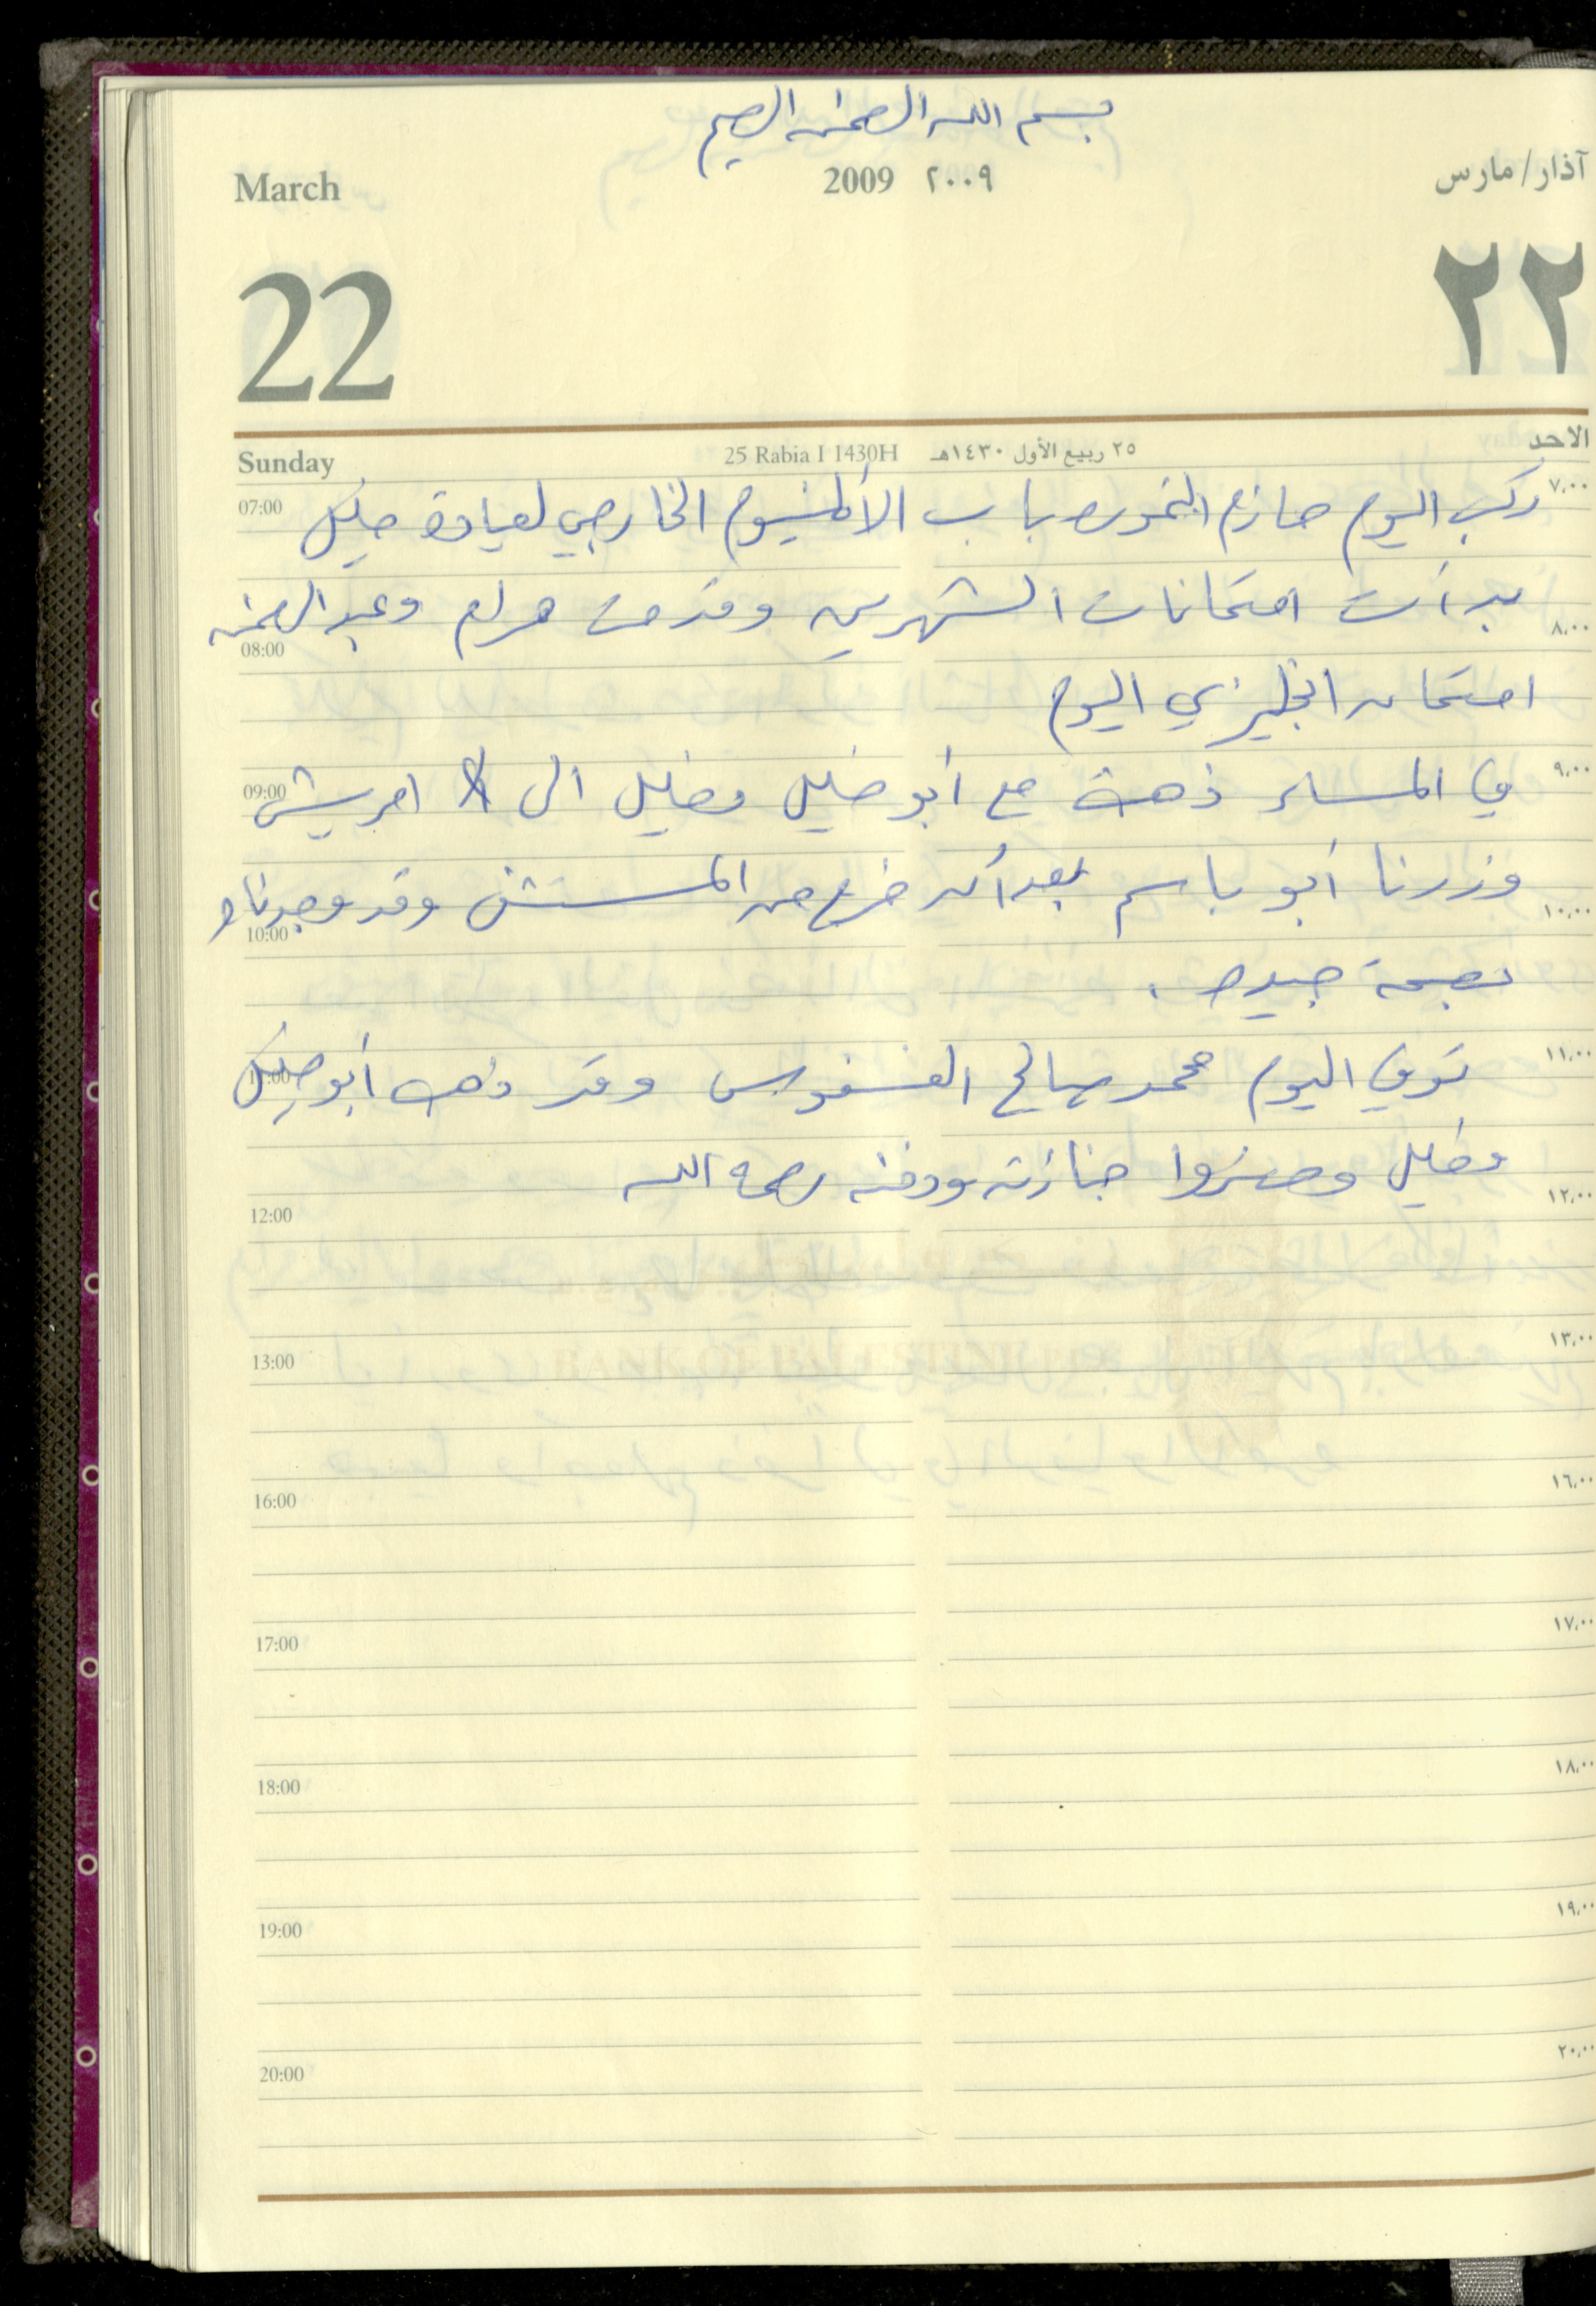 بسم الله الرحمن الرحيم
March 2009 ٢٠٠٩ آذار/مارس
22 ٢٢
Sunday 25 Rabia I 1430H ٢٥ ربيع الأول ١٤٣٠هـ الاحد
07:00 ركب اليوم حازم باب الألمنيوم الخارجي لعيادة ٧,٠٠
بدأت امتحانات الشهرين وقدمت مرام وعبد الرحمن
08:00 ٨,٠٠
امتحان انجليزي اليوم
09:00 في المساء ذهبت مع أبو خليل وخليل الى امريش ٩,٠٠
وزرنا أبو باسم بعد أن خرج من المستشفى وقد وجدناه
10:00 ١٠,٠٠
بصحة جيدة .
11:00 توفي اليوم محمد صالح الفسفوس وقد ذهب أبو خليل ١١,٠٠
وخليل وحضروا جنازته ودفنه رحمه الله
12:00 ١٢,٠٠
13:00 ١٣,٠٠
BANK OF PALESTINE
16:00 ١٦,٠٠
17:00 ١٧,٠٠
18:00 ١٨,٠٠
19:00 ١٩,٠٠
20:00 ٢٠,٠٠